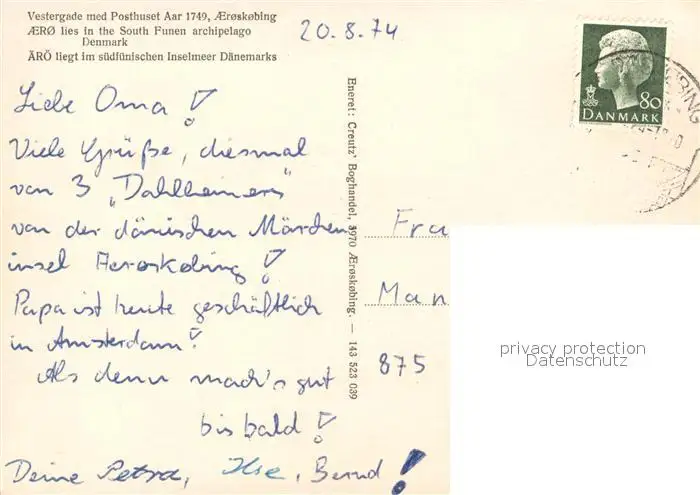 Vestergade med Posthuset Aar 1749, Ærøskøbing
ÆRØ lies in the South Funen archipelago
Denmark
ÄRÖ liegt im südfünischen Inselmeer Dänemarks
20.8.74
Liebe Oma!
Viele Grüße, diesmal
von 3 „Dahlheimern"
von der dänischen Märchen
insel Aeroskobing!
Papa ist heute geschäftlich
in Amsterdam!
Als denn mach's gut
bis bald!
Deine Petra, Ilse, Bernd!
Eneret: Creutz' Boghandel, 5970 Ærøskøbing. — 143 523 039
80
DANMARK
BING
Fra
Man
875
privacy protection
Datenschutz